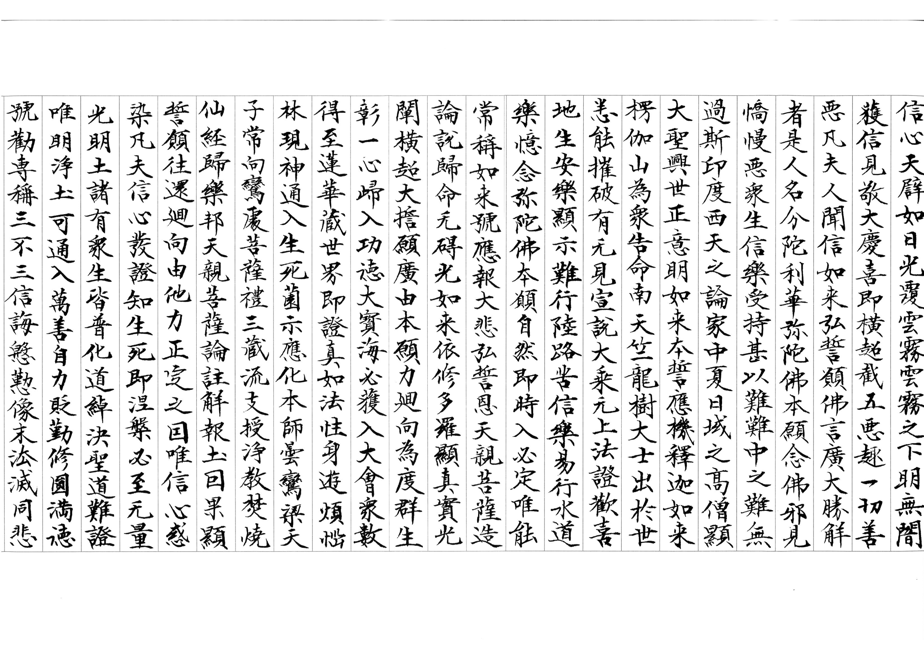 信心天辟如日光覆雲霧雲霧之下明無闇
獲信見敬大慶喜即横超截五悪趣一切善
悪凡夫人聞信如来弘誓願佛言廣大勝解
者是人名分陀利華弥陀佛本願念佛邪見
憍慢悪衆生信樂受持甚以難難中之難無
過斯印度西天之論家中夏日域之高僧顯
大聖興世正意明如来本誓應機釋迦如来
楞伽山為衆告命南天竺龍樹大士出於世
悉能摧破有无見宣説大乘无上法證歡喜
地生安樂顯示難行陸路苦信樂易行水道
樂憶念弥陀佛本願自然即時入必定唯能
常稱如来號應報大悲弘誓恩天親菩薩造
論説歸命无碍光如来依修多羅顯真實光
闡横超大擔願廣由本願力廻向為度群生
彰一心歸入功徳大寶海必獲入大會衆數
得至蓮華蔵世界即證真如法性身遊煩惱
林現神通入生死薗示應化本師曇鸞梁天
子常向鸞處菩薩禮三蔵流支授浄教焚焼
仙経歸樂邦天親菩薩論註解報土因果顯
誓願往還廻向由他力正定之因唯信心惑
染凡夫信心發證知生死即涅槃必至无量
光明土諸有衆生皆普化道綽決聖道難證
唯明浄土可通入萬善自力貶勤修圓満徳
號勸専稱三不三信誨慇懃像末法滅同悲